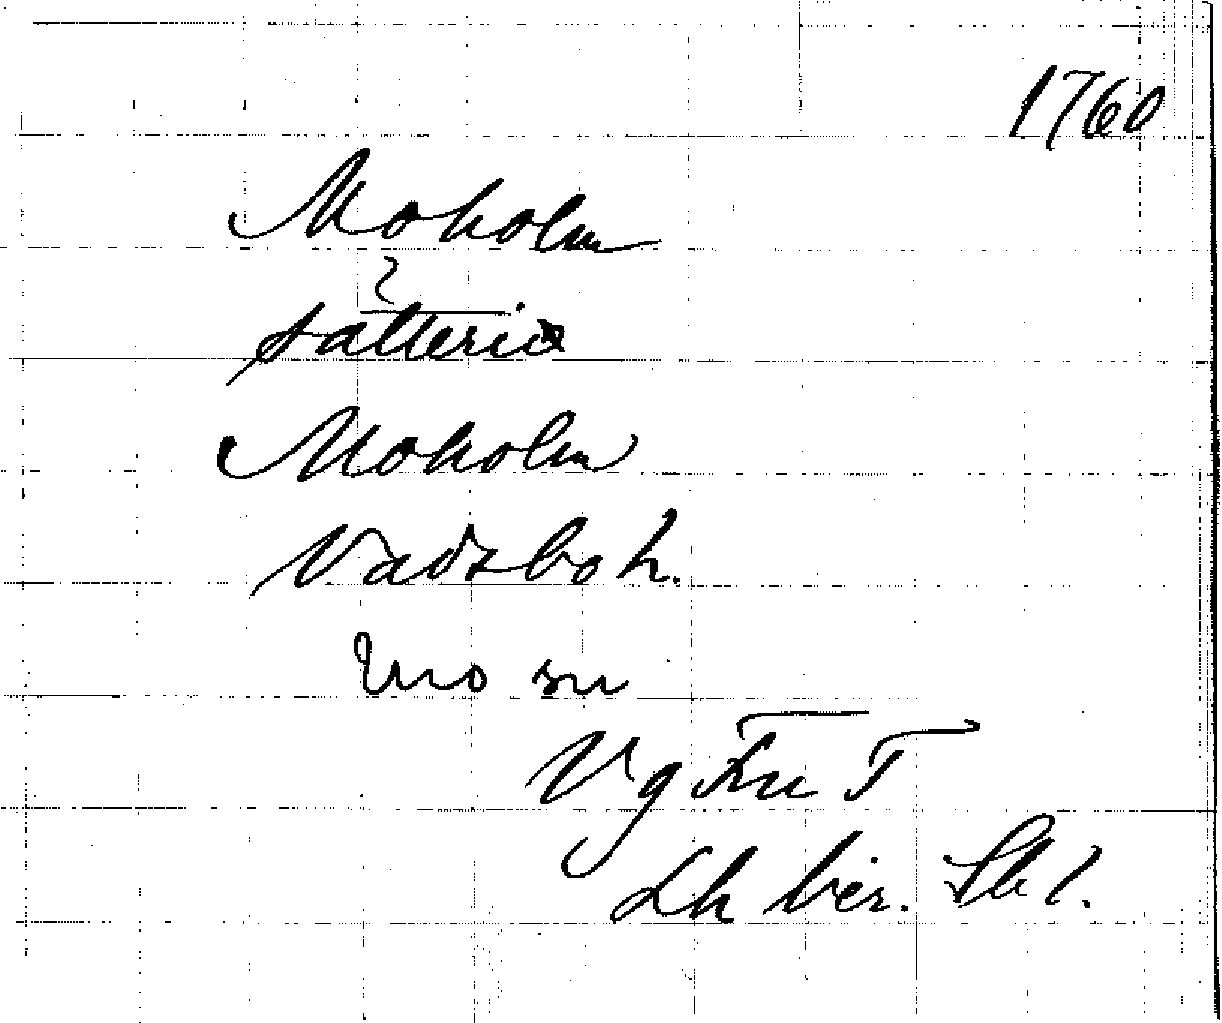 1760
Moholm
?
säteri
Moholm
Vadsbo h.
mo sn
Vg Fru T
Lh ber. Sk 1.